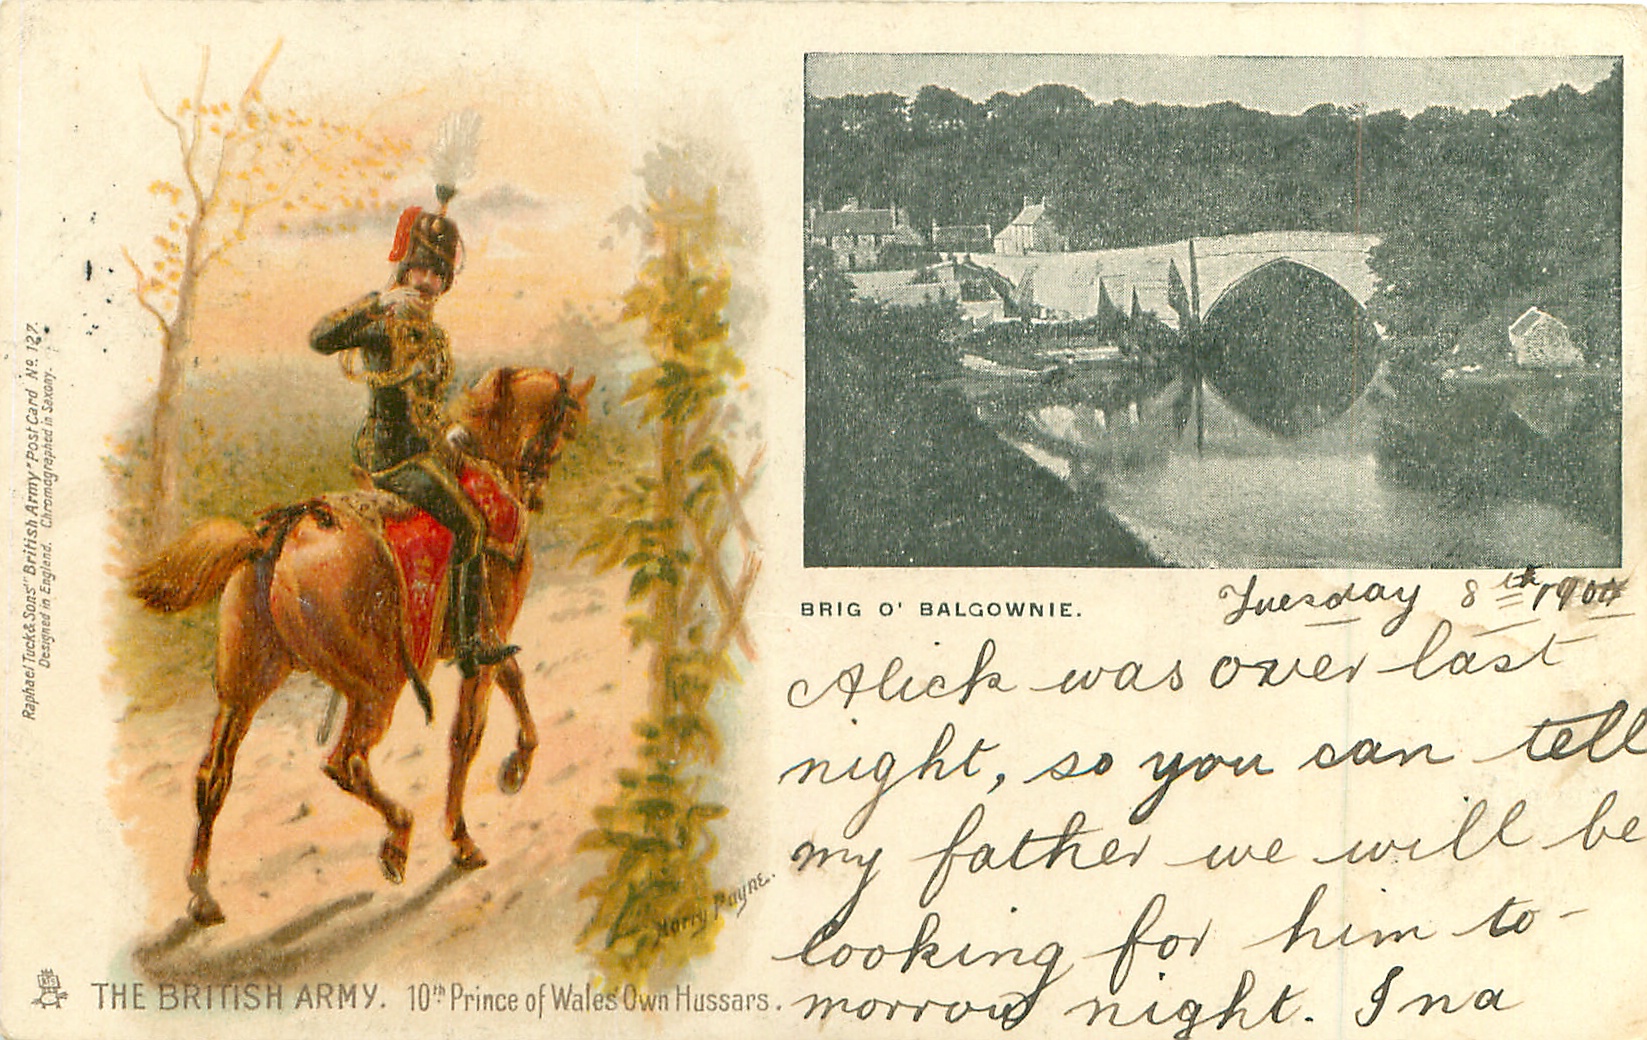 Raphael Tuck & Sons' "British Army" Post Card No. 127.
Designed in England. Chromographed in Saxony.
Harry Payne.
THE BRITISH ARMY. 10th Prince of Wales' Own Hussars.
BRIG O' BALGOWNIE.
Tuesday 8th
Alick was over last
night, so you can tell
my father we will be
looking for him to-
morrow night. Ina